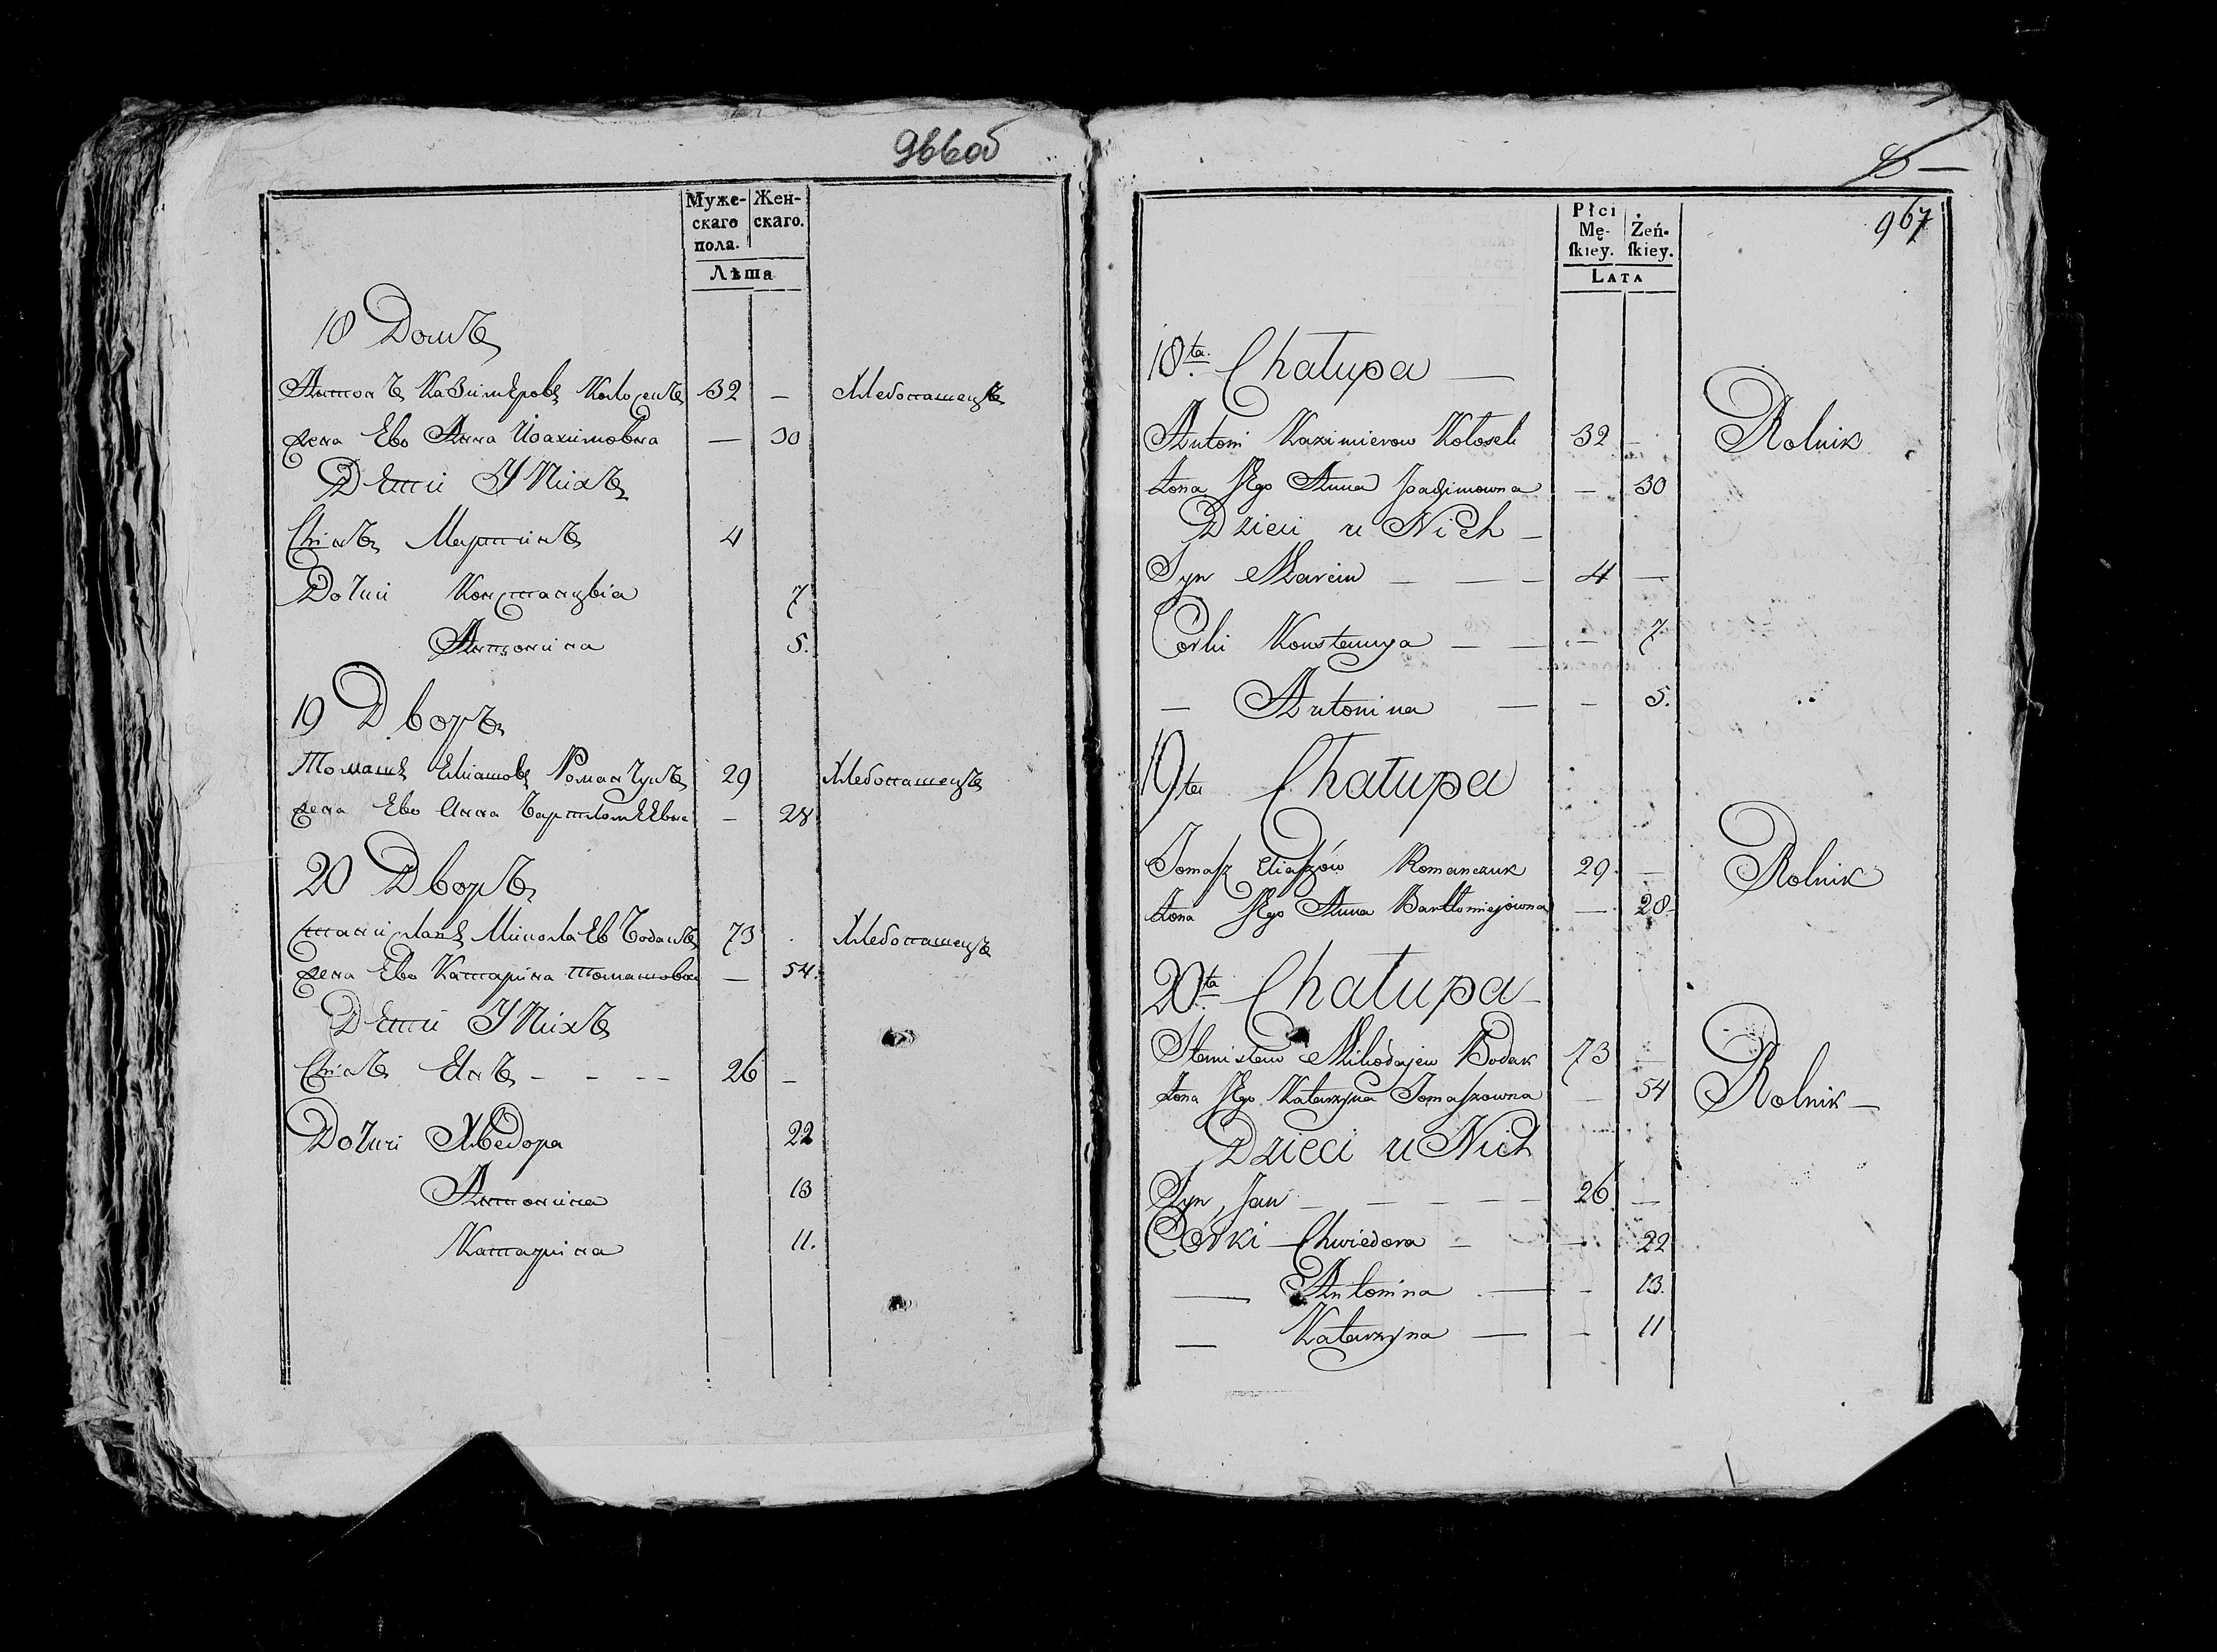 966об
Муже- Жен-
скаго скаго.
пола.
Лѣта
18 Домъ
Антонъ Казимѣровъ Колосекъ 32 — Хлебопашецъ
жена Ево Анна Иоахимовна — 30
Дѣти У Нихъ
Синъ Мартинъ 4
Дочки Констанцвіа 7
Антонина 5.
19 Дворъ
Томашъ Еліашовъ Романчукъ 29 Хлебопашецъ
жена Ево Анна Бартломѣевна — 28
20 Дворъ
Станиславъ Миколаев Бодакъ 73 Хлебопашецъ
жена Ево Катарина Томашовна — 54.
Дѣти У Нихъ
Синъ Янъ - - - - 26 —
Дочки Хведора 22
Антонина 13
Катарина 11.
967
Płci
Mę- Żeń-
ſkiey. ſkiey.
LATA
18.ta Chałupa —
Antoni Kazimierow Kołosek 32 — Rolnik
żona Jego Anna Joachimowna — 30
Dzieci u Nich —
Syn Marcin — — — 4 —
Corki Konstancya — — — 7
— Antonina — — 5.
19ta Chałupa
Tomaſz Eliaſzów Romanczuk 29. — Rolnik
żona Jego Anna Bartłomiejówna — 28
20.ta Chałupa —
Stanisław Mikołajew Bodak 73 —
żona Jego Katarzyna Tomaſzowna — 54 Rolnik —
Dzieci u Nich
Syn, Jan — — — — — 26 —
Córki — Chwiedora — — 22
— Antonina — - 13.
— Katarzyna — - 11